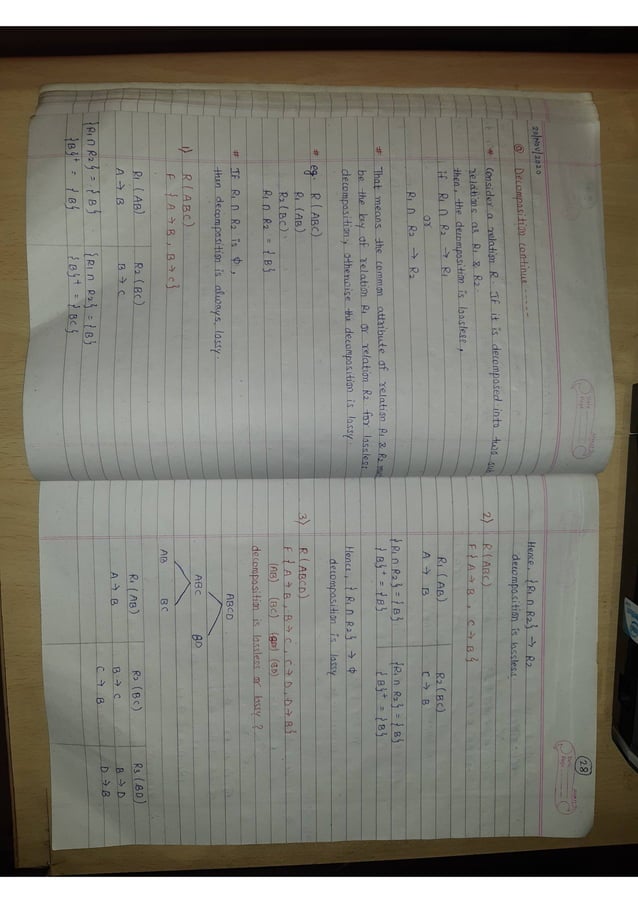 20/Nov/2020
Decomposition continue ------
* Consider a relation R. If it is decomposed into two sub
relations as R1 & R2.
then, the decomposition is lossless,
if R1 ∩ R2 → R1
or
R1 ∩ R2 → R2
# That means the common attribute of relation R1 & R2 must
be the key of relation R1 or relation R2 for lossless
decomposition, otherwise the decomposition is lossy.
* eg. R (ABC)
R1 (AB)
R2 (BC).
R1 ∩ R2 = {B}
# If R1 ∩ R2 is ϕ,
then decomposition is always lossy.
1) R (ABC)
F {A → B, B → C}
R1 (AB) R2 (BC)
A → B B → C
{R1 ∩ R2} = {B} {R1 ∩ R2} = {B}
{B}+ = {B} {B}+ = {BC}
28
Hence, {R1 ∩ R2} → R2
decomposition is lossless.
2) R (ABC)
F {A → B, C → B}
R1 (AB) R2 (BC)
A → B C → B
{R1 ∩ R2} = {B} {R1 ∩ R2} = {B}
{B}+ = {B} {B}+ = {B}
Hence, {R1 ∩ R2} → ϕ
decomposition is lossy
3) R (ABCD)
F {A → B, B → C, C → D, D → B}
(AB) (BC) (BD)
decomposition is lossless or lossy?
ABCD
ABC BD
AB BC
R1 (AB) R2 (BC) R3 (BD)
A → B B → C B → D
C → B D → B